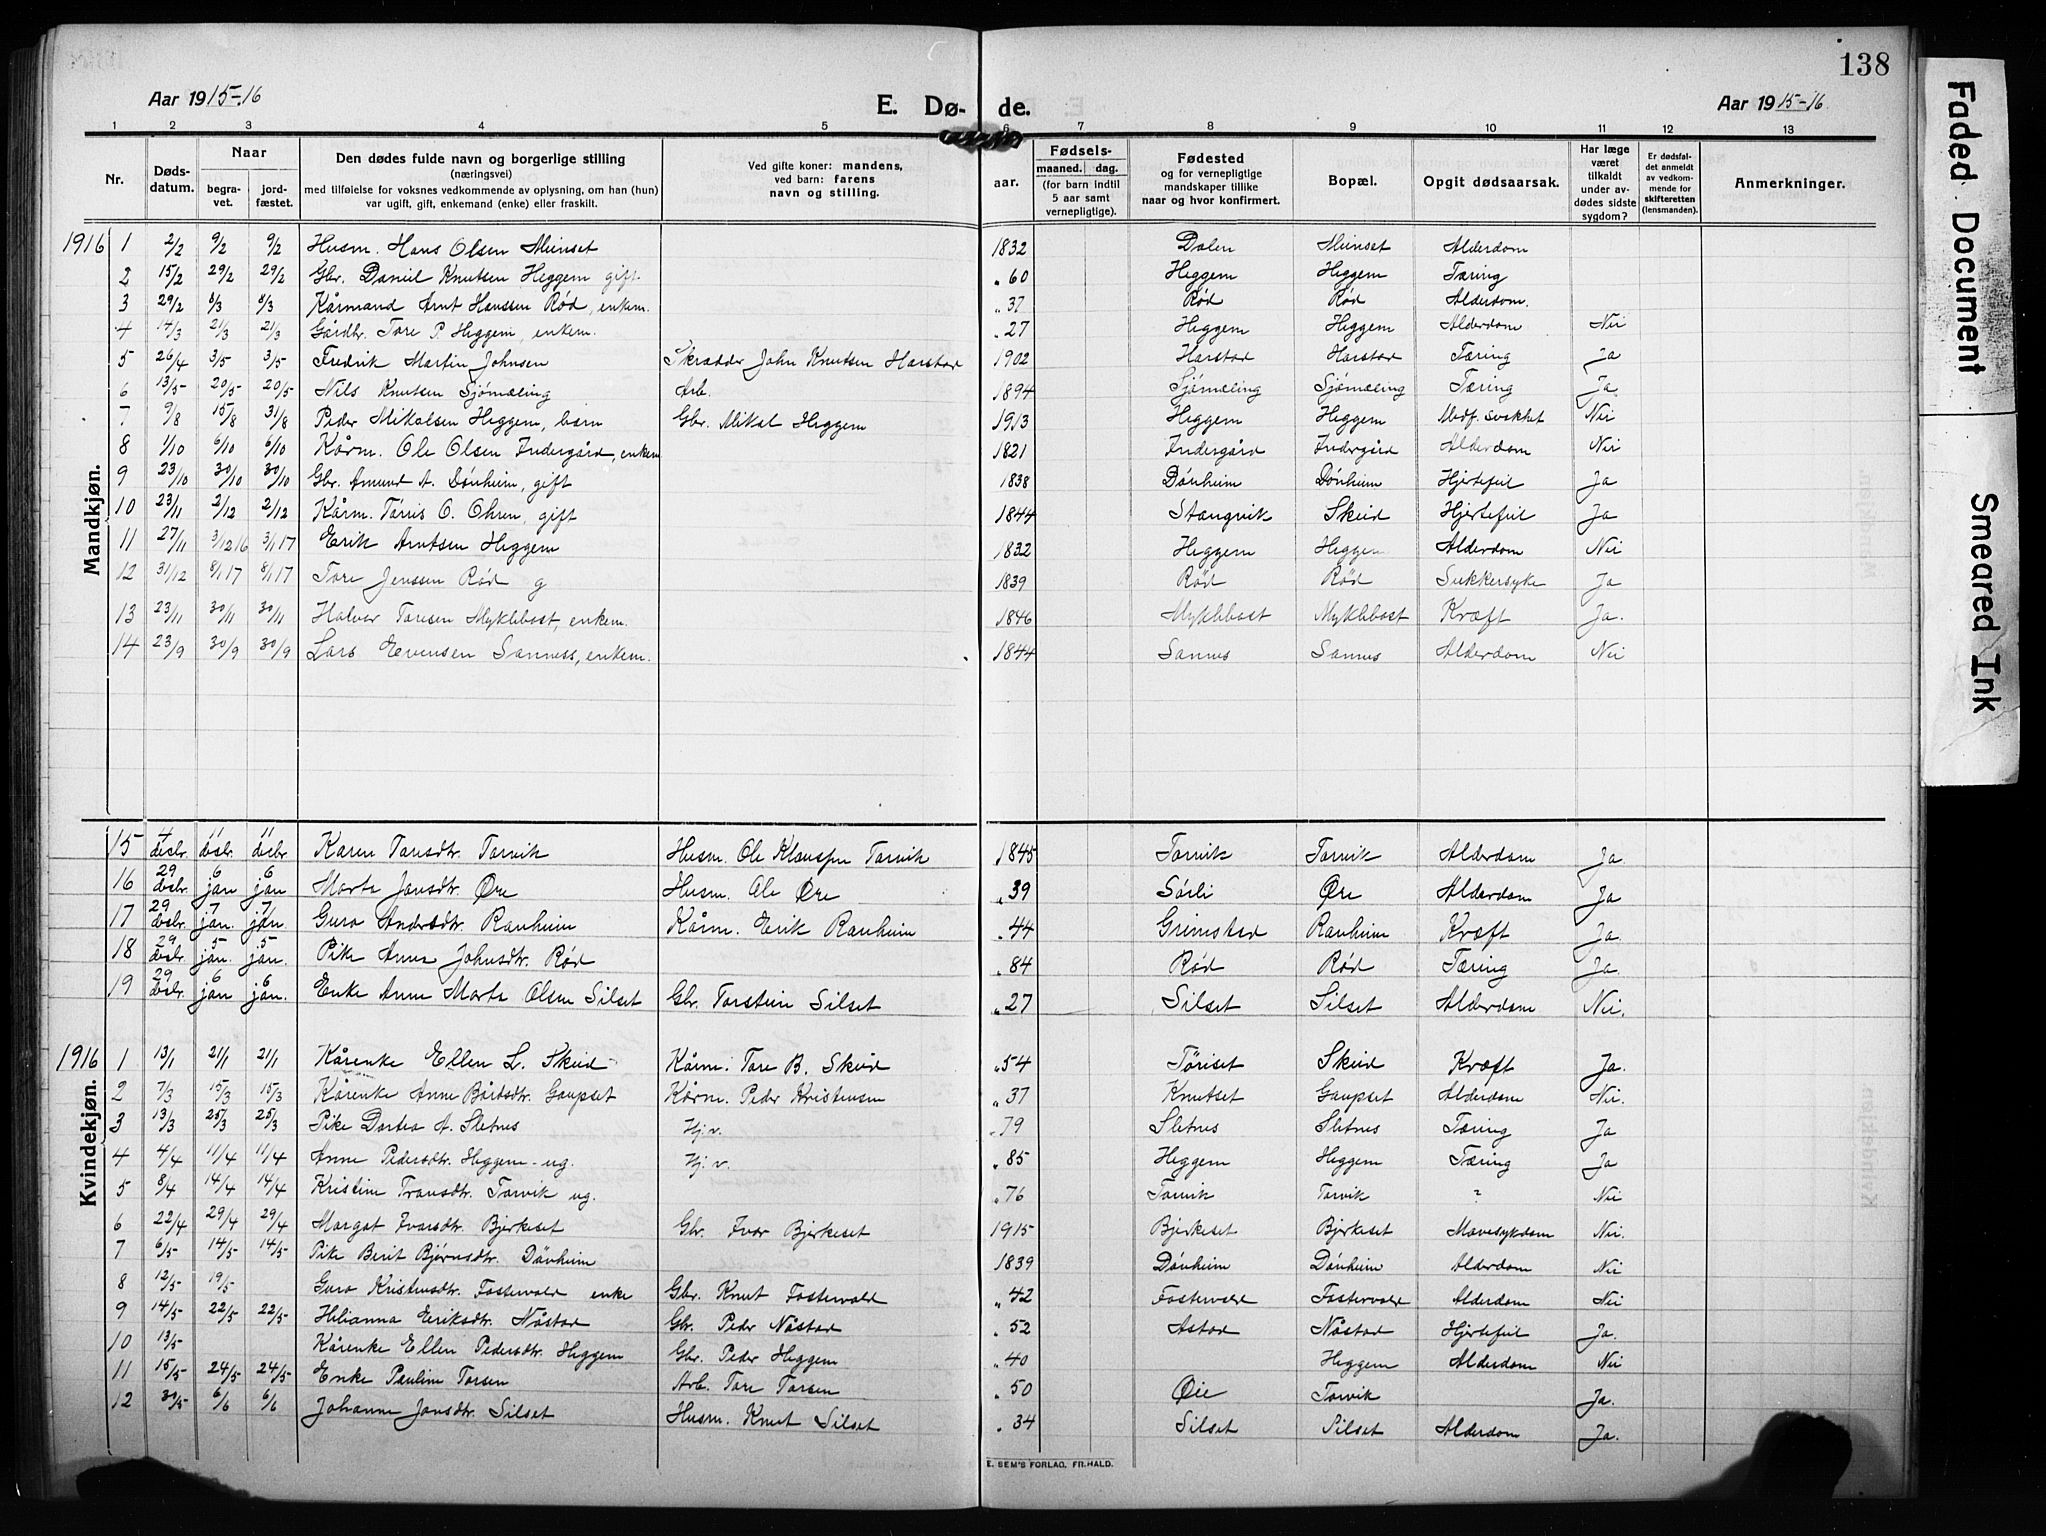 138
Aar 1915-16
E. Dø- de.
Aar 1915-16
1 2 3 4 5 6 7 8 9 10 11 12 13
Nr. Døds-datum. Naar begra-vet. jord-fæstet. Den dødes fulde navn og borgerlige stilling (næringsvei) med tilføielse for voksnes vedkommende av oplysning, om han (hun) var ugift, gift, enkemand (enke) eller fraskilt. Ved gifte koner: mandens, ved barn: farens navn og stilling. Fødsels- aar. maaned. dag. (for barn indtil 5 aar samt vernepligtige). Fødested og for vernepligtige mandskaper tillike naar og hvor konfirmert. Bopæl. Opgit dødsaarsak. Har læge været tilkaldt under av-dødes sidste sygdom? Er dødsfal-det anmeldt av vedkom-mende for skifteretten (lensmanden). Anmerkninger.
Mandkjøn.
1916 1 2/2 9/2 9/2 Husm. Hans Olsen Meinset 1832 Dalen Meinset Alderdom
2 15/2 29/2 29/2 Gbr. Daniel Knutsen Heggem gift „60 Heggem Heggem Tæring
3 29/2 8/3 8/3 Kårmand Arnt Hanssen Rød, enkem. „37 Rød Rød Alderdom.
4 14/3 21/3 21/3 Gårdbr. Tore P. Heggem, enkem. „27 Heggem Heggem Alderdom Nei
5 26/4 3/5 3/5 Fredrik Martin Johnsen Skrædder John Knutsen Harstad 1902 Harstad Harstad Tæring Ja
6 13/5 20/5 20/5 Nils Knutsen Sjømæling Arb. 1894 Sjømæling Sjømæling Tæring Ja
7 9/8 15/8 31/8 Peder Mikalsen Heggem, barn Gbr. Mikal Heggem 1913 Heggem Heggem Medf. svakhet Nei
8 1/10 6/10 6/10 Kårm. Ole Olsen Indergård, enkem 1821 Indergård Indergård Alderdom Nei
9 23/10 30/10 30/10 Gbr. Amund A. Dønheim, gift 1838 Dønheim Dønheim Hjertefeil Ja
10 23/11 2/12 2/12 Kårm. Tørris O. Ohren, gift 1844 Stangvik Skeid Hjertefeil Ja
11 27/11 3/12 16 3/1 17 Erik Arntsen Heggem 1832 Heggem Heggem Alderdom Nei
12 31/12 8/1 17 8/1 17 Tore Jenssen Rød g 1839 Rød Rød Sukkersyke Ja
13 23/11 30/11 30/11 Halvor Toresen Myklebost, enkem. 1846 Myklebost Myklebost Kræft Ja.
14 23/9 30/9 30/9 Lars Evensen Sanness, enkem. 1844 Sannes Sannes Alderdom Nei
Kvindekjøn.
15 4 desbr. 11 desbr. 11 desbr Karen Toresdtr. Torvik Husm. Ole Klaussen Torvik 1845 Torvik Torvik Alderdom Ja.
16 29 desbr. 6 jan 6 jan Marta Jonsdtr. Øre Husm. Ole Øre „39 Sørli Øre Alderdom Ja
17 29 desbr. 7 jan. 7 jan. Guro Andersdtr. Ranheim Kårm. Erik Ranheim „44 Grimstad Ranheim Kræft Ja.
18 29 desbr. 5 jan. 5 jan. Pike Anna Johnsdtr. Rød „84 Rød Rød Tæring Ja.
19 29 desbr. 6 jan 6 jan. Enke Anne Marta Olsen Silset Gbr. Torstein Silset „27 Silset Silset Alderdom Nei.
1916 1 13/1 21/1 21/1 Kårenke Ellen L. Skeid Kårm. Tore B. Skeid „54 Tøriset Skeid Kræft Ja.
2 7/3 15/3 15/3 Kårenke Anne Bårdsdtr. Gaupset Kårm. Peder Kristensen „37 Knutset Gaupset Alderdom Nei.
3 13/3 25/3 25/3 Pike Dortea A. Sletnes Hj. v. „79 Sletnes Sletnes Tæring Ja
4 4/4 11/4 11/4 Anne Pedersdtr. Heggem - ug. Hj. v. „85 Heggem Heggem Tæring Ja
5 8/4 14/4 14/4 Kristine Tronsdtr. Torvik ug. „76 Torvik Torvik ? Nei
6 22/4 29/4 29/4 Margot Ivarsdtr. Bjerkeset Gbr. Ivar Bjerkeset 1915 Bjerkeset Bjerkeset Mavesykdom Nei.
7 6/5 14/5 14/5 Pike Berit Bjørnsdtr. Dønheim 1839 Dønheim Dønheim Alderdom Nei
8 12/5 19/5 Guro Kristensdtr. Fostervold enke Gbr. Knut Fostervold „42 Fostervold Fostervold Alderdom Nei
9 14/5 22/5 22/5 Helianna Eriksdtr. Nåstad Gbr. Peder Nåstad „52 Astad Nåstad Hjertefeil Ja.
10 13/5 Kårenke Ellen Pedersdtr. Heggem Gbr. Peder Heggem „40 Heggem Alderdom Nei
11 15/5 24/5 24/5 Enke Pauline Torsen Arb. Tore Torsen „50 Øie Torvik Ja.
12 30/5 6/6 6/6 Johanne Jonsdtr. Silset Husm. Knut Silset „34 Silset Silset Alderdom Ja.
E. SEM'S FORLAG, FR.HALD.
Faded Document
Smeared Ink